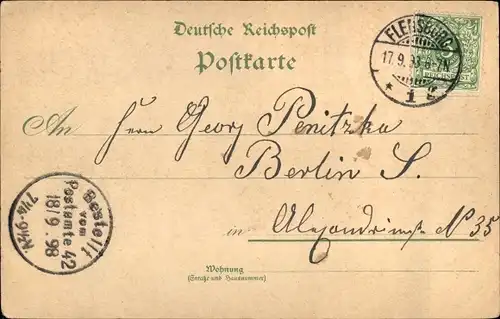 Deutsche Reichspost
Postkarte
FLENSBURG
17.9.98.6-7N
* 1 c
REICHSPOST
An Herrn Georg Penitzka
Berlin S.
in Alexandrinestr N 35
Bestellt
vom
Postamte 42
18/9.98
7¼-9¼N.
Wohnung
(Straße und Hausnummer)